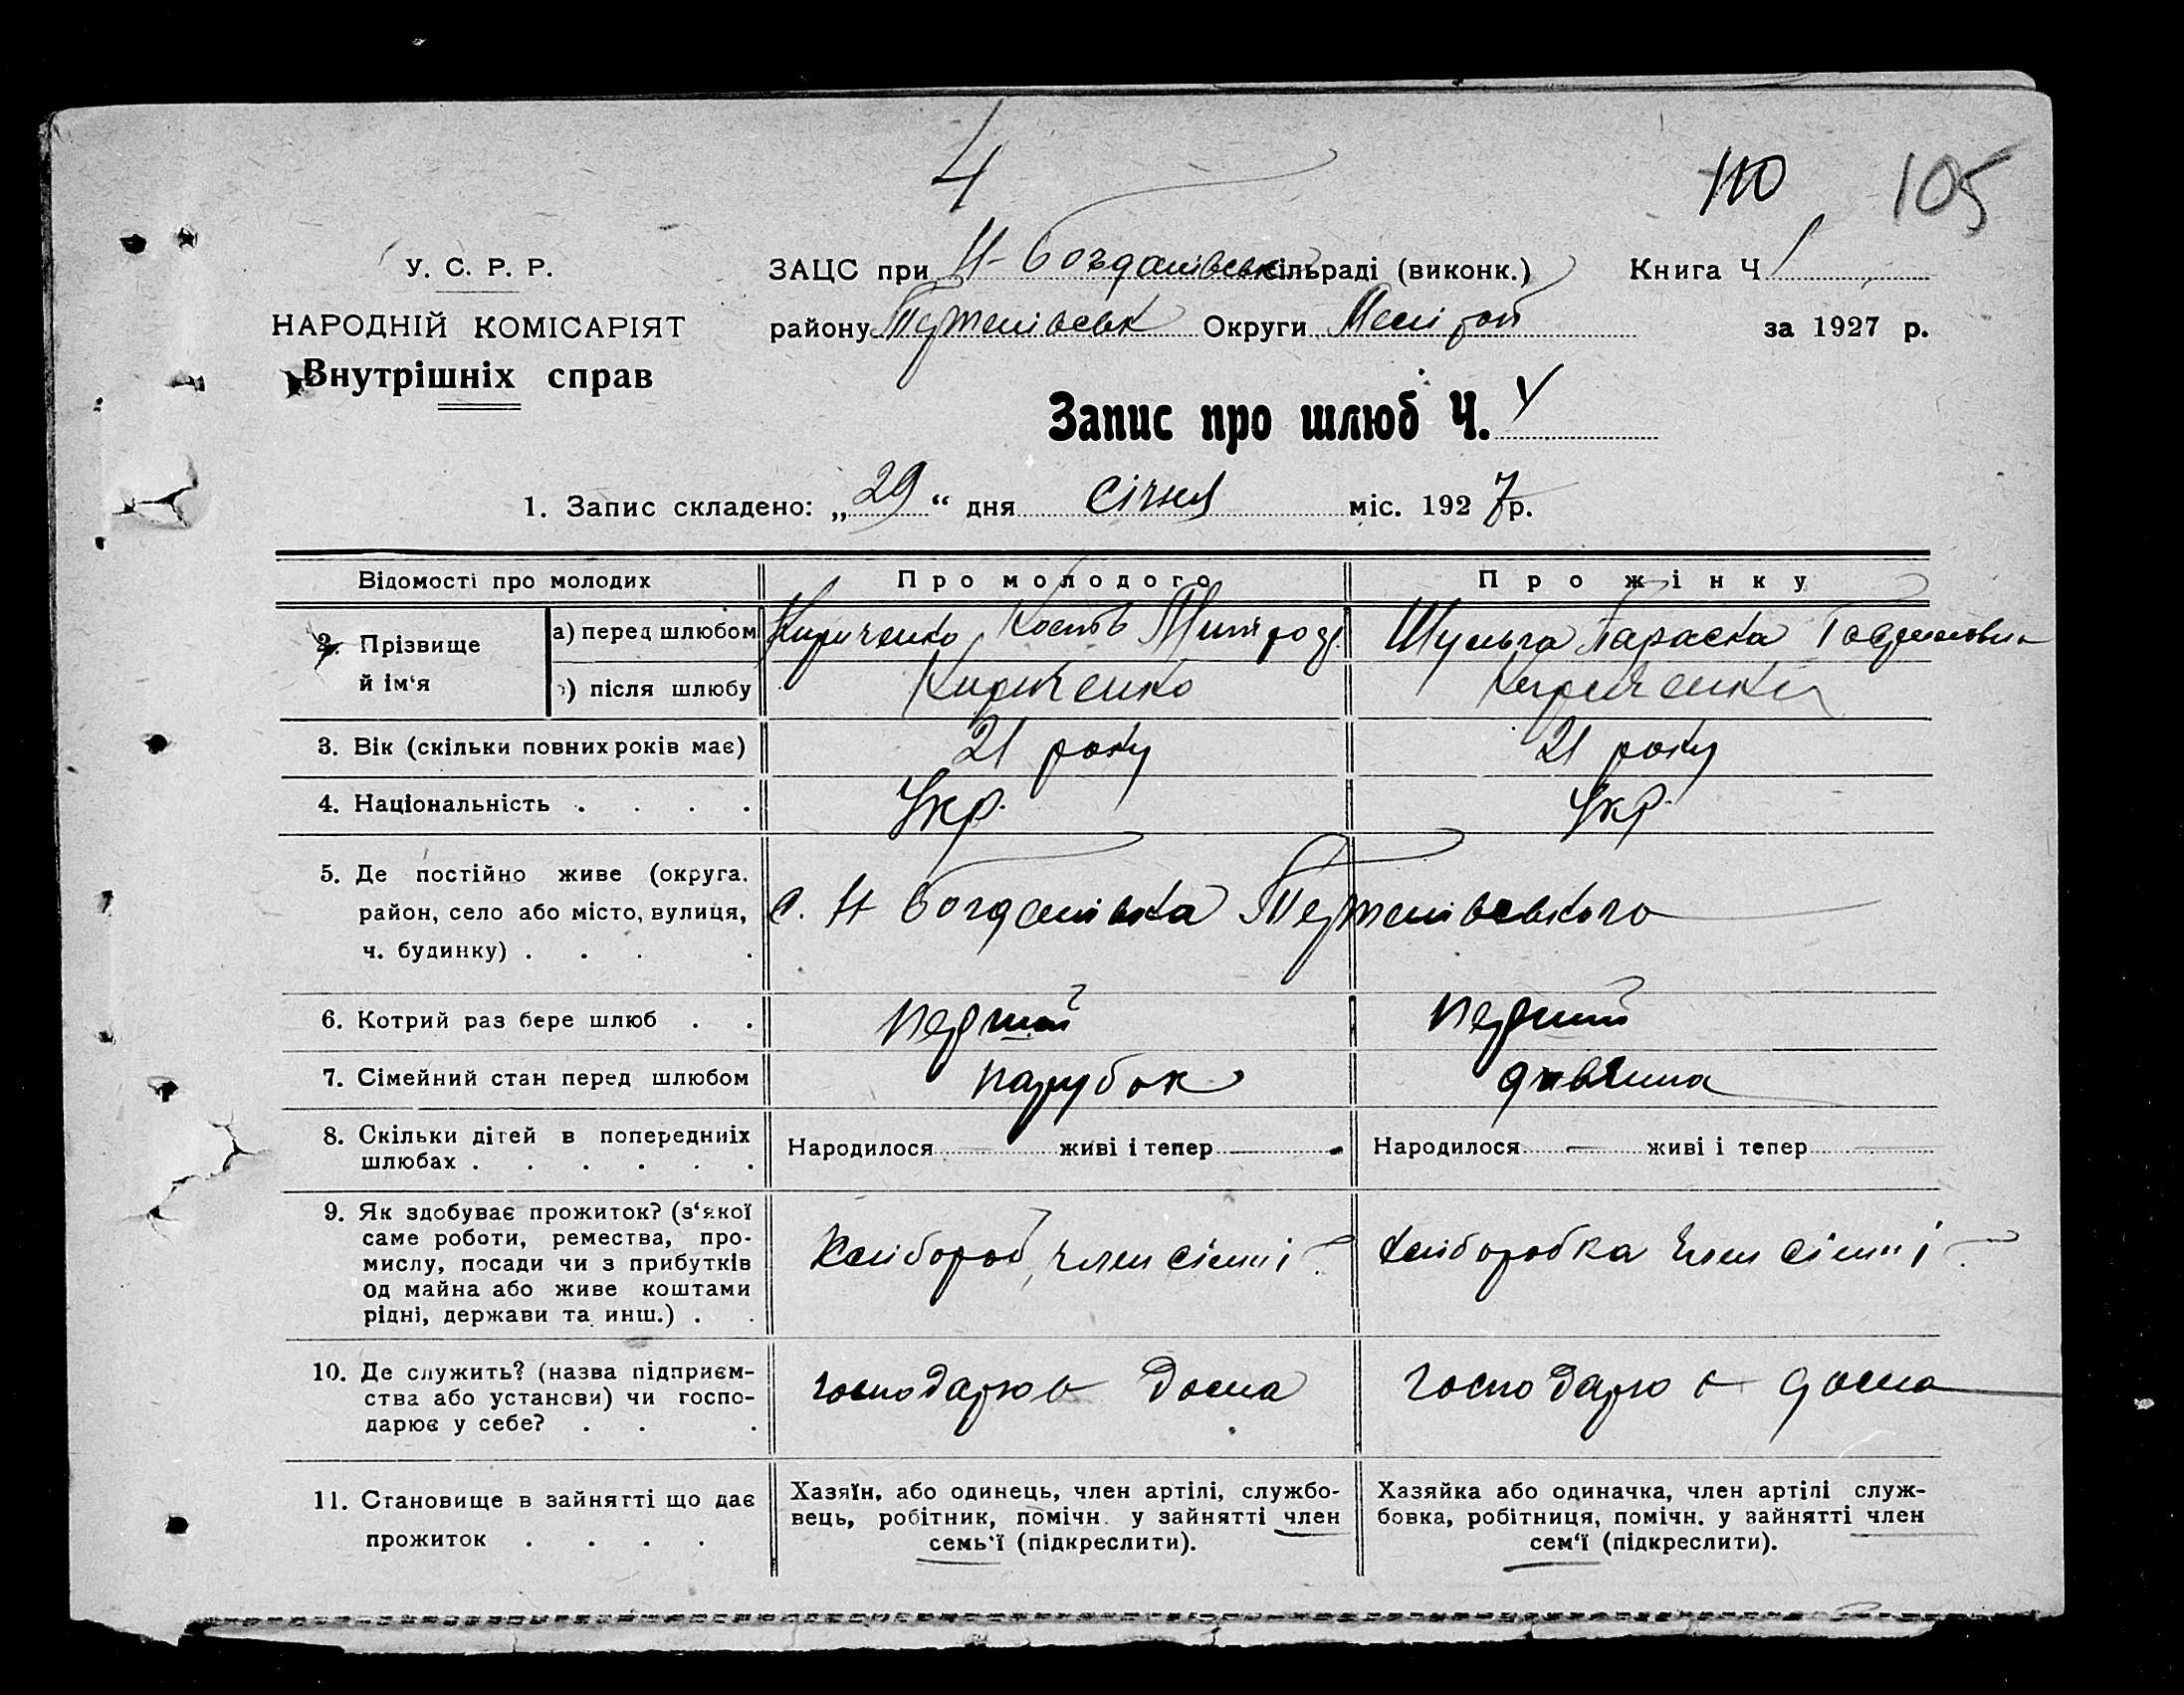 4
110 105
У. С. Р. Р.
НАРОДНІЙ КОМІСАРІЯТ
Внутрішніх справ
ЗАЦС при Н-Богданівськ сільраді (виконк.)
району Терпенівськ Округи Меліт
Книга Ч 1
за 1927 р.
Запис про шлюб Ч. 4
1. Запис складено: „29“ дня січня міс. 1927 р.
Відомості про молодих Про молодого Про жінку
2. Прізвище й ім‘я
а) перед шлюбом Кириченко Кость Шульга Параска
б) після шлюбу Кириченко Кириченко
3. Вік (скільки повних років має) 21 року 21 року
4. Національність . . . . Укр. Укр.
5. Де постійно живе (округа.
район, село або місто, вулиця, с. Н Богданівка Терпенівського
ч. будинку) . . . .
6. Котрий раз бере шлюб . . перший перший
7. Сімейний стан перед шлюбом парубок дівчина
8. Скільки дітей в попередниіх
шлюбах . . . . . . Народилося — живі і тепер — Народилося — живі і тепер —
9. Як здобуває прожиток? (з‘якої
саме роботи, ремества, про-
мислу, посади чи з прибутків Хлібороб, член сімьї хлiборобка член сімьї
од майна або живе коштами
рідні, держави та инш.) . .
10. Де служить? (назва підприєм-
ства або установи) чи госпо- господарю є дома господарю є дома
дарює у себе? . . .
11. Становище в зайнятті що дає
прожиток . . . .
Хазяїн, або одинець, член артілі, службо-
вець, робітник, помічн. у зайнятті член
семь‘ї (підкреслити).
Хазяйка або одиначка, член артілі служ-
бовка, робітниця, помічн. у зайнятті член
сем‘ї (підкреслити).